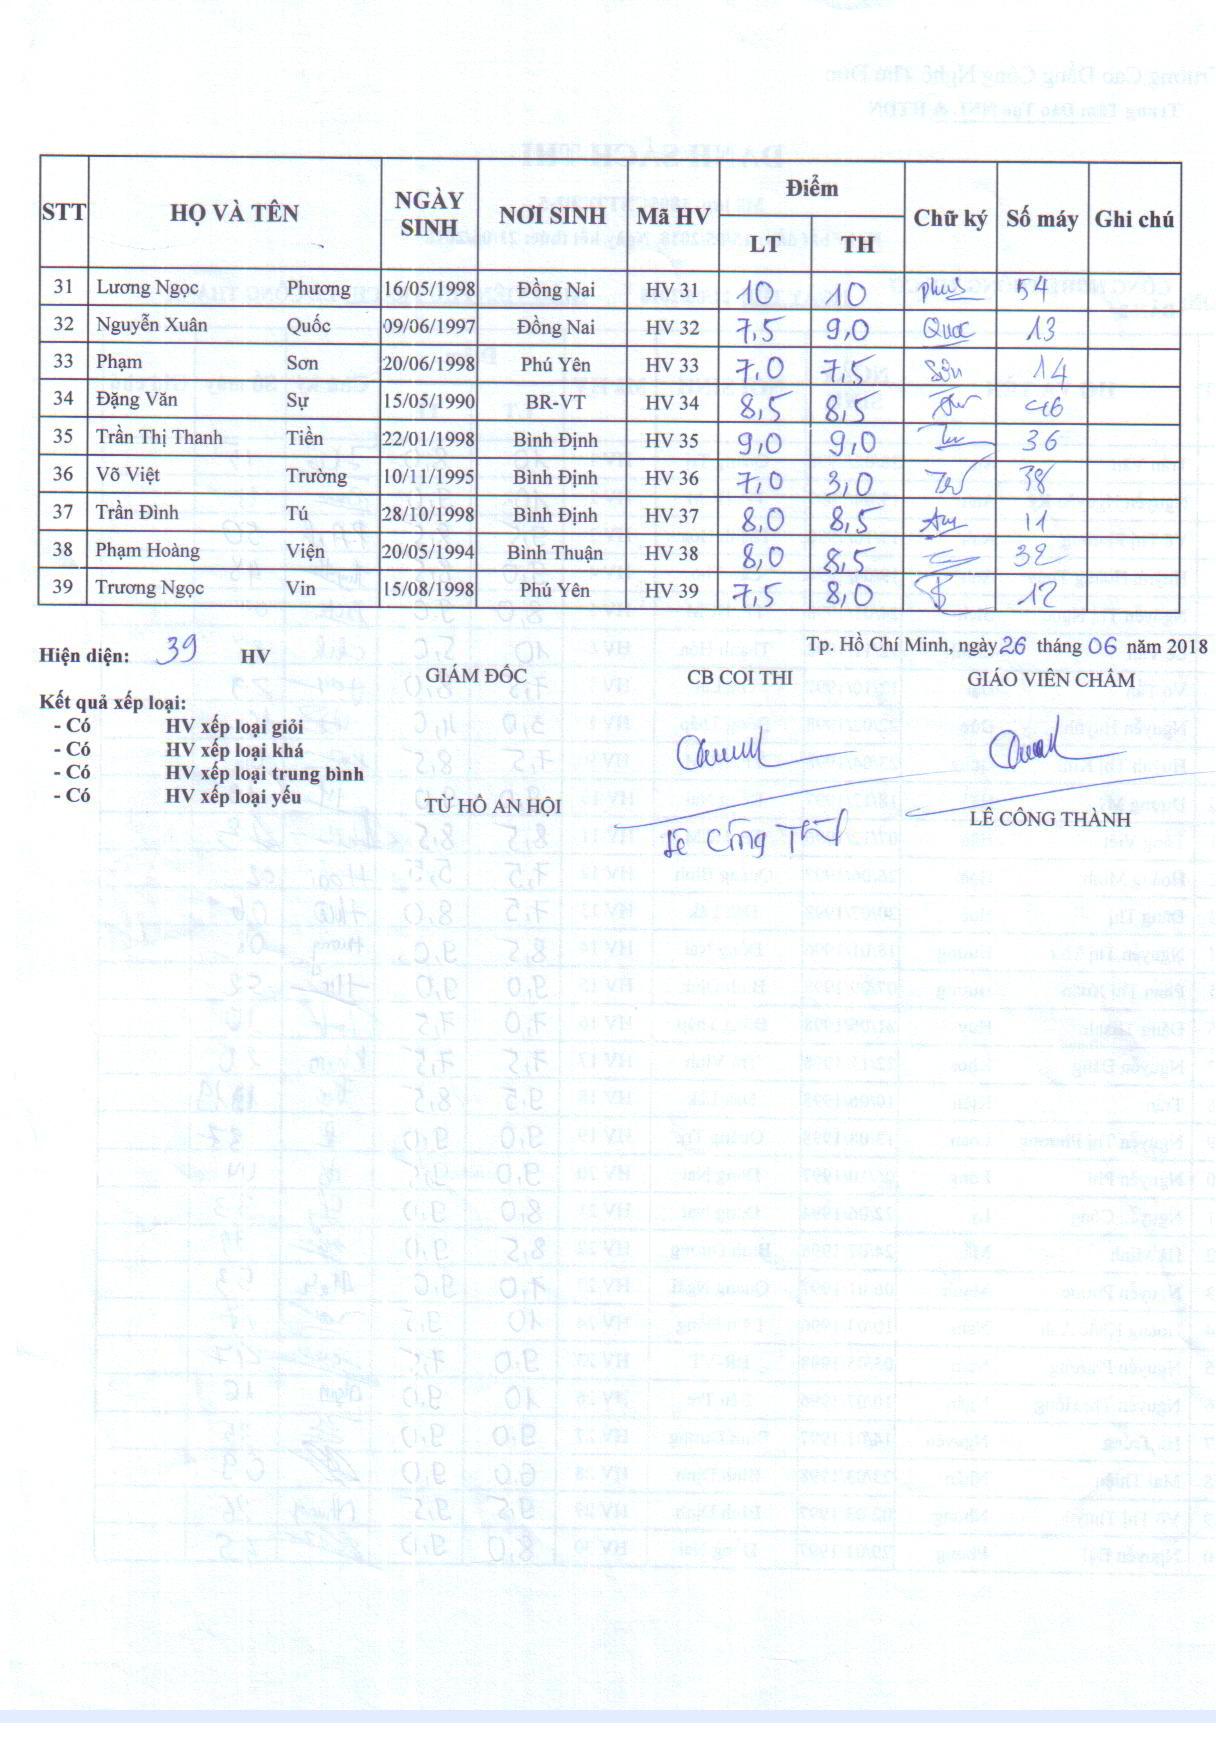 STT HỌ VÀ TÊN NGÀY SINH NƠI SINH Mã HV Điểm Chữ ký Số máy Ghi chú
LT TH
31 Lương Ngọc Phương 16/05/1998 Đồng Nai HV 31 10 10 54
32 Nguyễn Xuân Quốc 09/06/1997 Đồng Nai HV 32 7,5 9,0 Quốc 13
33 Phạm Sơn 20/06/1998 Phú Yên HV 33 7,0 7,5 Sơn 14
34 Đặng Văn Sự 15/05/1990 BR-VT HV 34 8,5 8,5 46
35 Trần Thị Thanh Tiền 22/01/1998 Bình Định HV 35 9,0 9,0 36
36 Võ Việt Trường 10/11/1995 Bình Định HV 36 7,0 3,0 38
37 Trần Đình Tú 28/10/1998 Bình Định HV 37 8,0 8,5 11
38 Phạm Hoàng Viện 20/05/1994 Bình Thuận HV 38 8,0 8,5 32
39 Trương Ngọc Vin 15/08/1998 Phú Yên HV 39 7,5 8,0 12
Tp. Hồ Chí Minh, ngày 26 tháng 06 năm 2018
Hiện diện: 39 HV
GIÁM ĐỐC CB COI THI GIÁO VIÊN CHẤM
Kết quả xếp loại:
- Có HV xếp loại giỏi
- Có HV xếp loại khá
- Có HV xếp loại trung bình
- Có HV xếp loại yếu
TỪ HỒ AN HỘI
LÊ CÔNG THÀNH
Lê Công